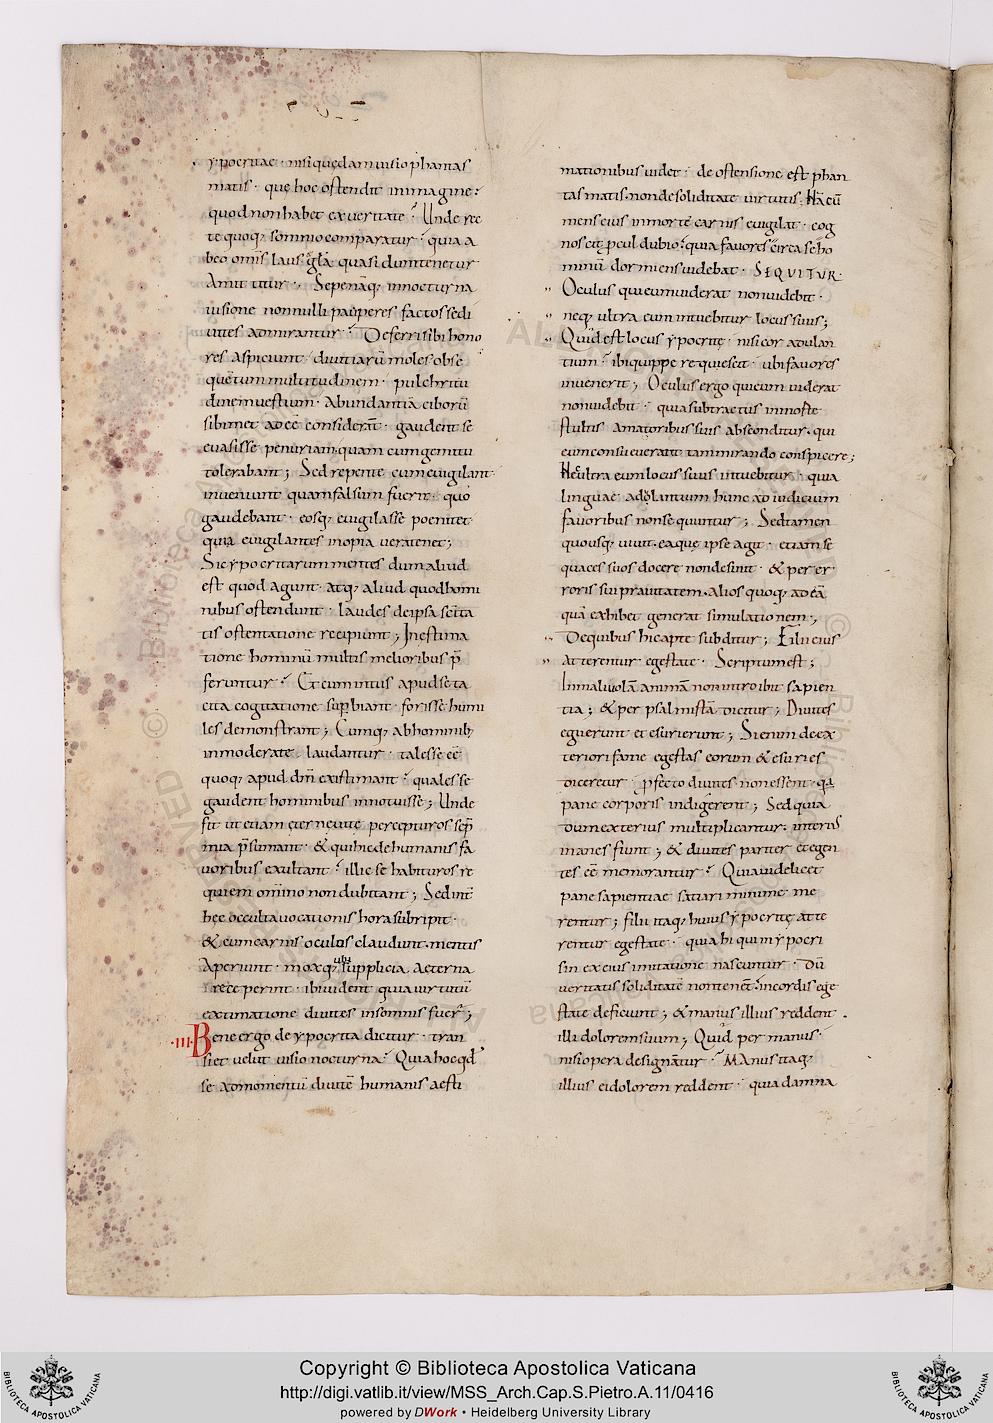 ypocritae · nisi quędam uisio phantas
matis · quę hoc ostendit in imagine ·
quod non habet ex ueritate · Unde rec
te quoq; somnio comparatur · quia a
beo om̅is laus & gl̅a quasi dum tenetur
Amittitur ; Sepe nāq; in nocturna
uisione nonnulli pauperes factos se di
uites admirantur · Deferri sibi hono
res aspiciunt · diuitiarū moles obse
quentum multitudinem · pulchritu
dinem uestium · Abundantiā ciborū
sibimet adeē considerant · gaudent se
euasisse penuriam quam cum gemitu
tolerabant ; Sed repente cum euigilant
inueniunt quam falsum fuerit · quo
gaudebant · eosq; euigilasse poenitet
quia euigilantes inopia uera tenet ;
Sic ypocritarum mentes dum aliud
est quod agunt · atq; aliud quod homi
nibus ostendunt · laudes de ipsa sc̅ita
tis ostentatione recipiunt ; In estima
tione hominū multis melioribus p̅
feruntur · Et cum intus apud se ta
cita cogitatione sup̅biant · foris se humi
les demonstrant ; Cumq; ab hominib;
inmoderate laudantur · tales se eē
quoq; apud dm̅ existimant · quales se
gaudent hominibus innotuisse ; Unde
fit ut etiam ęternę uitę percepturos sep̅
mia p̅sumant · & qui hic de humanis fa
uoribus exultant · illic se habituros re
quiem om̅ino non dubitant ; Sed int̅
hęc occulta uocationis hora subripit ·
& cum carnis oculos claudunt · mentis
Aperiunt · moxq; ubi supplicia Aeterna
receperint · ibi uident quia uirtutū
extimatione diuites in somnis fuer̅ ;
·III· Bene ergo de ypocrita dicitur · tran
siet uelut uisio nocturna · Quia hoc qd̅
se ad momentū diuitē humanis aesti
mationibus uidet · de ostensione est phan
tasmatis · non de soliditate uirtutis · Nā cū
mens eius in morte carnis euigilat · cog
noscit p̱cul dubio · quia fauores circa se ho
minū dormiens uidebat · SEQUITUR ·
Oculus qui eum uiderat non uidebit ·
neq; ultra eum intuebitur locus suus ;
Quid est locus ypocritę · nisi cor adulan
tium · ibi quippe requiescit · ubi fauores
inuenerit ; Oculus ergo qui eum uiderat
non uidebit · quia subtractus in morte
stultis amatoribus suis absconditur · qui
eum consueuerant tam mirando conspicere ;
Nec ultra eum locus suus intuebitur · quia
linguae adolantium hunc ad iudicium
fauoribus non sequuntur ; Sed tamen
quousq; uiuit · ea quę ipse agit · etiam se
quaces suos docere non desinit · & per er
roris sui prauitatem · alios quoq; ad eā
quā exhibet generat simulationem ;
De quibus hic apte subditur ; Filii eius
Atterentur egestate · Scriptum est ;
In maliuolā animā non introibit sapien
tia ; & per psalmistā dicitur ; Diuites
eguerunt et esurierunt ; Si enim de ex
teriori fame egestas eorum & esuries
diceretur · p̱fecto diuites non essent · qa̅
pane corporis indigerent ; Sed quia
dum exterius multiplicantur · interius
inanes fiunt ; & diuites pariter et egen
tes eē memorantur · Quia uidelicet
pane sapientiae satiari minime me
rentur ; filii itaq; huius ypocritę atte
rentur egestate · quia hi qui in ypocri
sin ex eius imitatione nascuntur · Dū
ueritatis soliditatē non tenēt · in cordis ege
state deficiunt ; & manus illius reddent
illi dolorem suum ; Quid per manus ·
nisi opera designātur · Manus itaq;
illius ei dolorem reddent · quia damna
Copyright © Biblioteca Apostolica Vaticana
http://digi.vatlib.it/view/MSS_Arch.Cap.S.Pietro.A.11/0416
powered by DWork • Heidelberg University Library
BIBLIOTECA APOSTOLICA VATICANA
BIBLIOTECA APOSTOLICA VATICANA